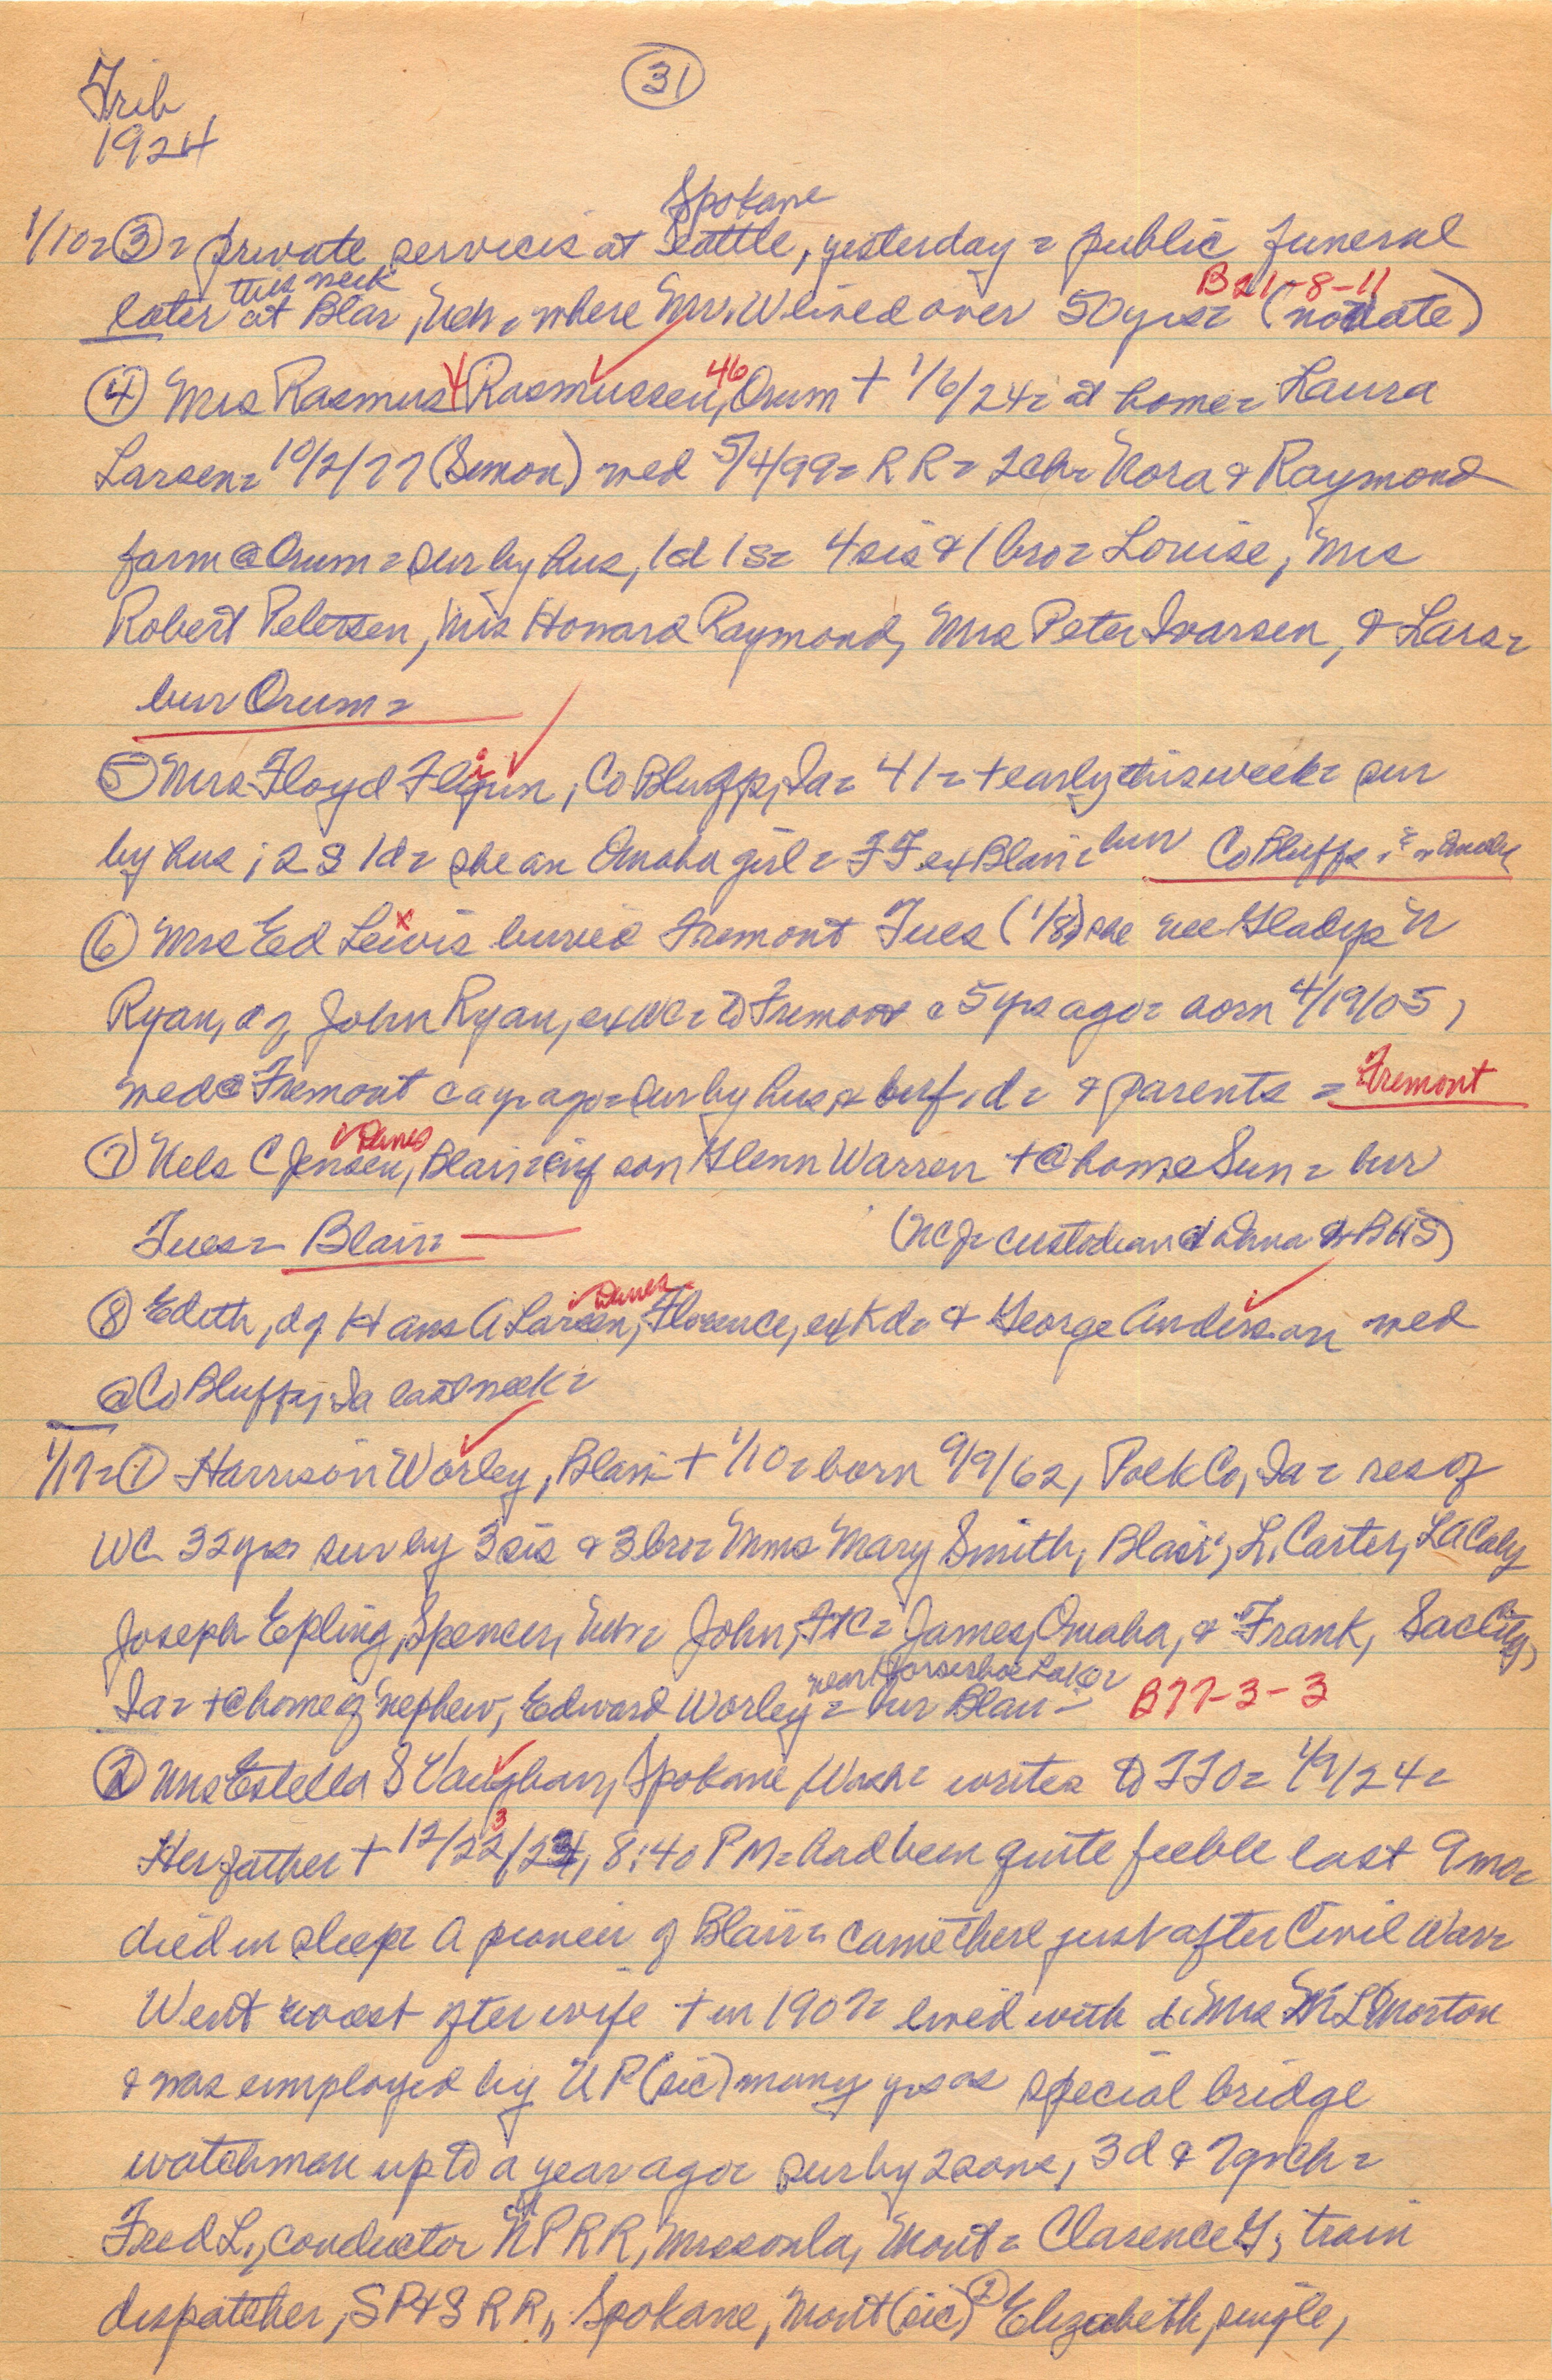 Trib
1924
31
Spokane
1/10= 3= private services at Seattle, yesterday= public funeral
this week B21-8-11
later at Blair, Neb, where Mr. W lived over 50 yrs= (no date)
4 Mrs Rasmus Rasmussen, 46 Orum + 1/6/24= at home= Laura
Larsen= 10/2/77 (Simon) med 5/4/99= RR= 2ch= Nora & Raymond
farm @ Orum= sur by hus, 1d 1s= 4 sis & 1 bro= Louise, Mrs
Robert Petersen, Mrs Howard Raymond, Mrs Peter Ivarsen, & Lars=
bur Orum=
5 Mrs Floyd Flynn, Co Bluffs, Ia= 41= + early this week= sur
by hus, 2s 1d= she an Omaha girl= FF ex Blair= bur Co Bluffs
6 Mrs Ed Lewis buried Fremont Tues (1/8) she nee Gladys
Ryan, d of John Ryan, ex WC= to Fremont c 5 yrs ago= born 4/19/05,
med @ Fremont c a yr ago= sur by hus, & inf. d= & parents = Fremont
Danes
7 Nels C Jensen, Blair= inf son Glenn Warren + @ home Sun= bur
Tues= Blair= (NCJ= custodian @ Dana & BHS)
Danes
8 Edith, d of Hans A Larsen, Florence, ex Kd= & George Anderson med
@ Co Bluffs, Ia last week=
1/17= 1 Harrison Worley, Blair + 1/10= born 9/9/62, Polk Co, Ia= res of
WC 32 yrs sur by 3 sis & 3 bro= Mmes Mary Smith, Blair, L. Carter, LA Calif
Joseph Epling, Spencer, Neb= John, FtC= James, Omaha, & Frank, Sac City,
near Horseshoe Lake=
Ia= + @ home of nephew, Edward Worley= bur Blair= B77-3-3
2 Mrs Estella S Vaughan, Spokane, Wash= writes to FFO= 1/9/24=
Her father + 12/22/23, 8:40 PM= had been quite feeble last 9 mo=
died in sleep= A pioneer of Blair= came there just after Civil War=
Went west after wife + in 1907= lived with d. Mrs M L Morton
& was employed by UP (sic) many yrs as special bridge
watchman up to a year ago= sur by 2 sons, 3d & 7 grch=
Fred L., conductor NPRR, Missoula, Mont= Clarence G, train
dispatcher, SP&S RR, Spokane, Mont (sic) Elizabeth, single,